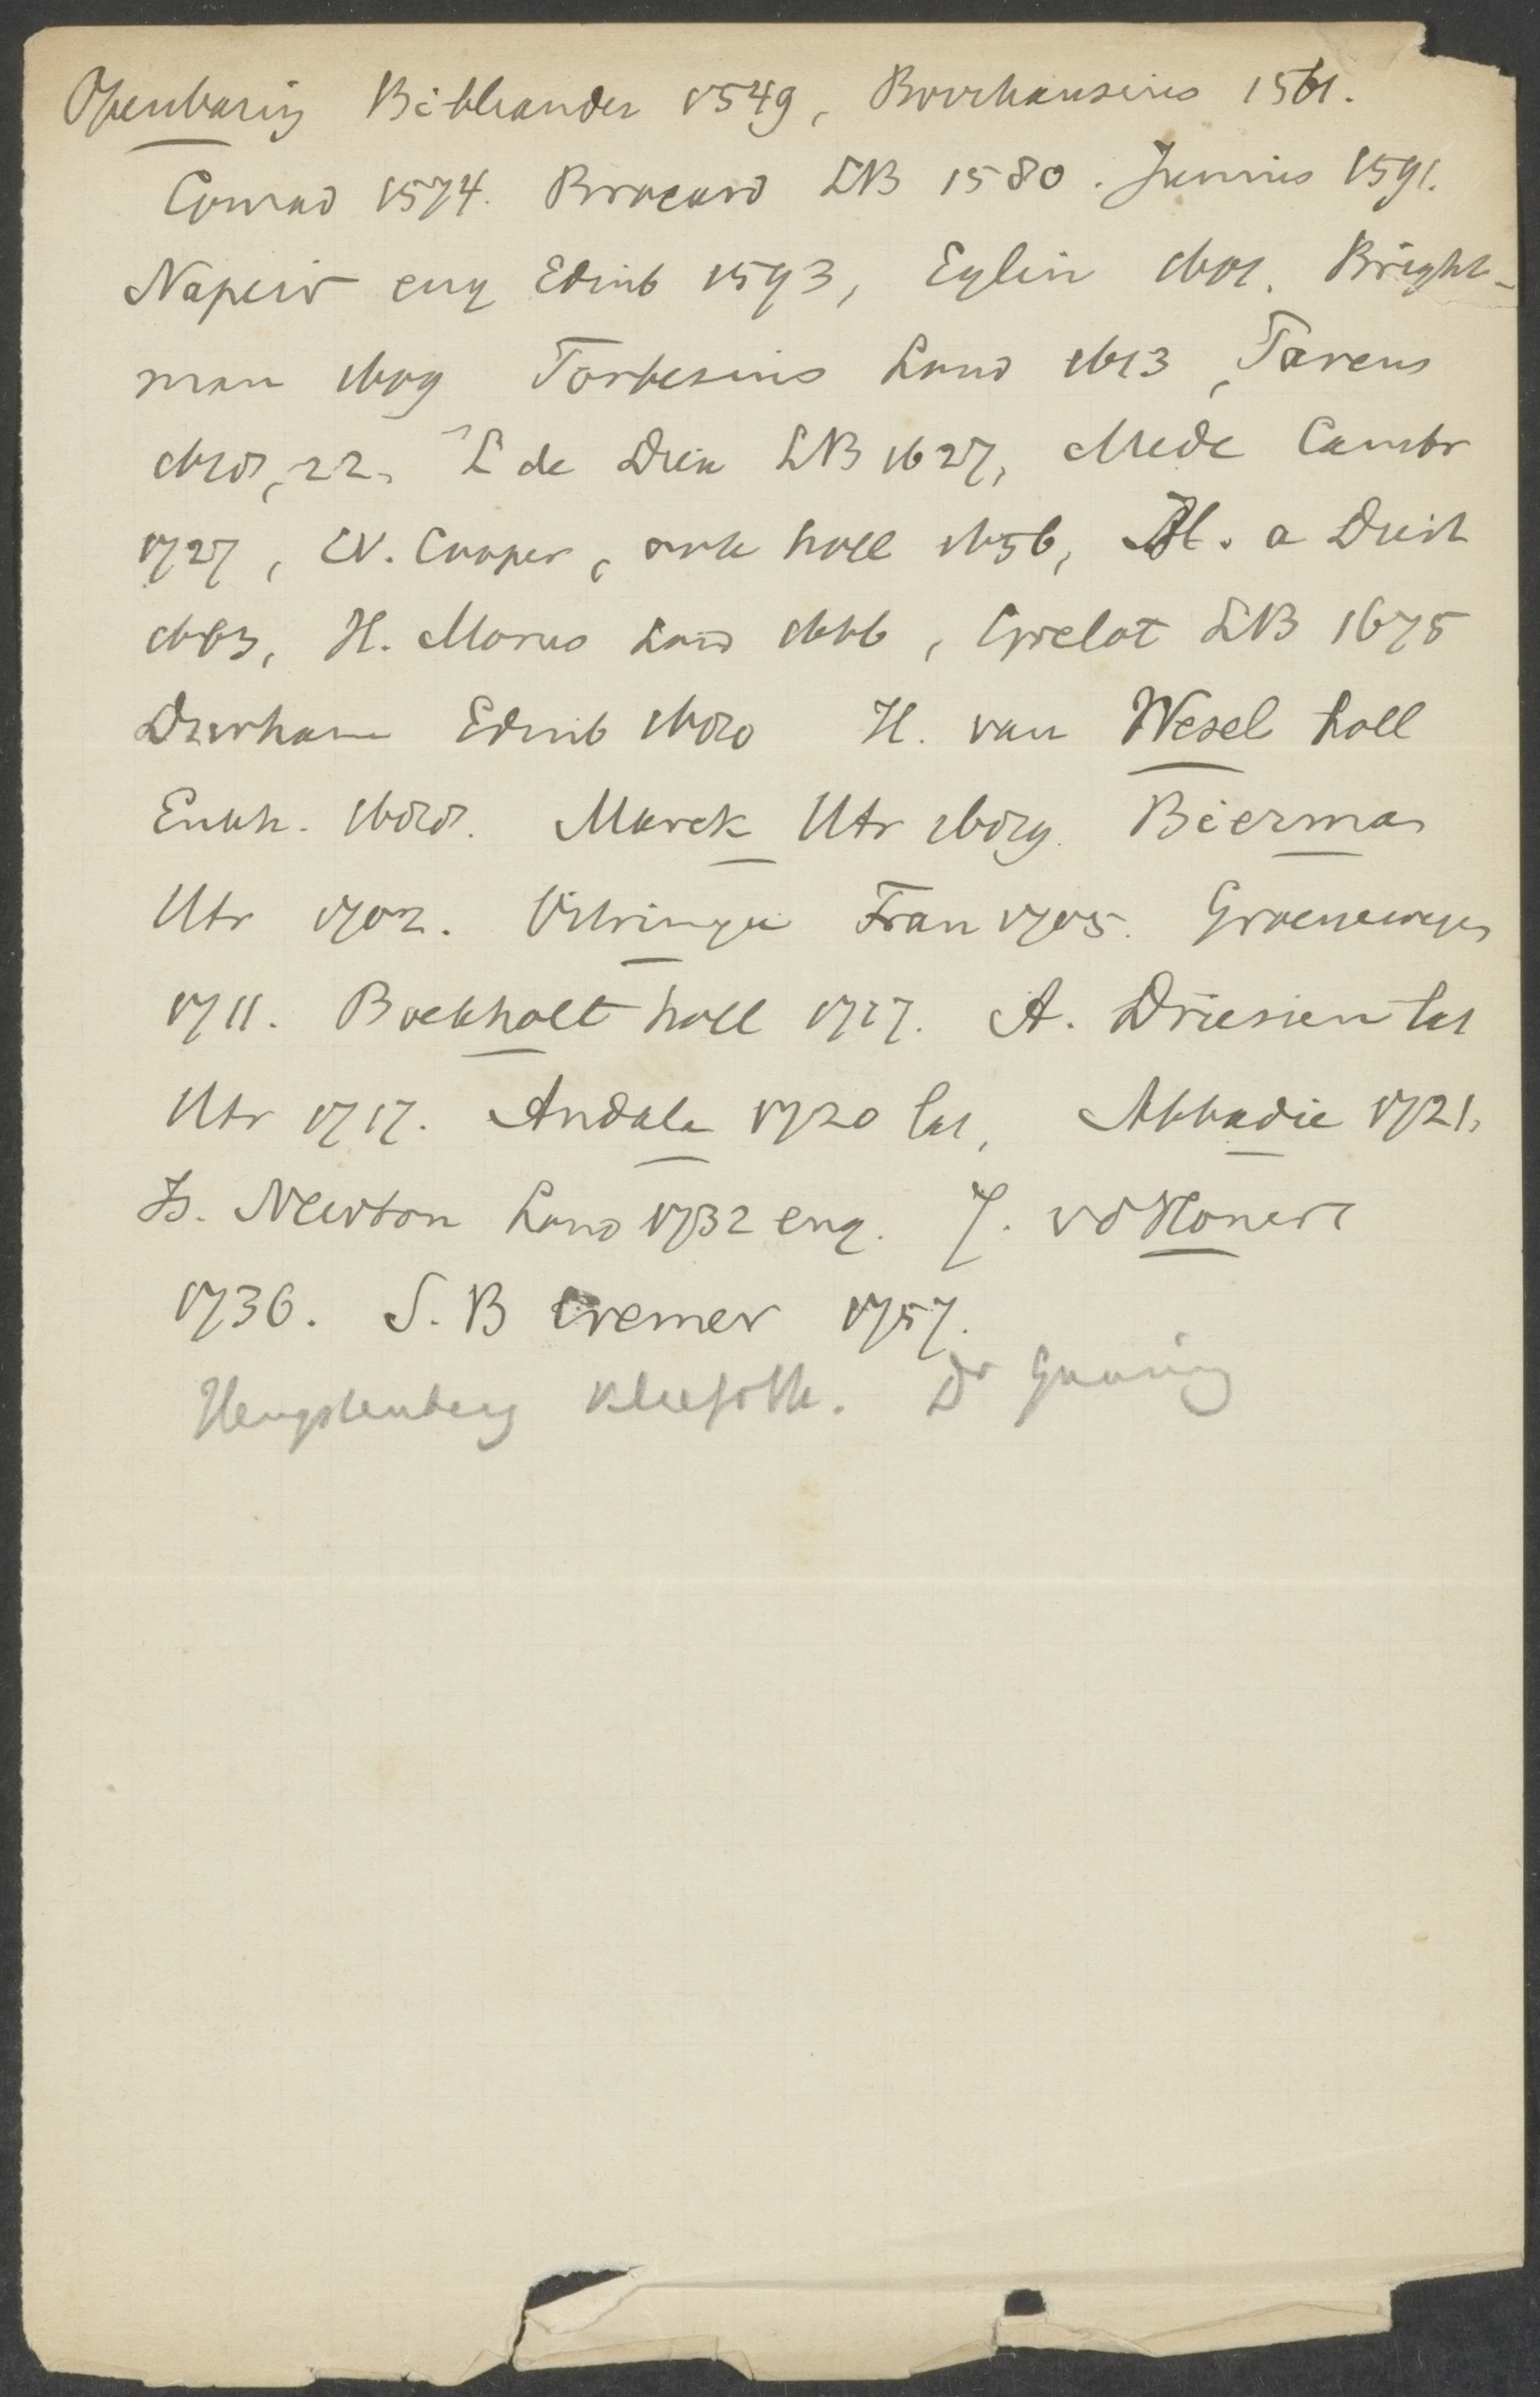 Openbaring Bibliander 1549, Borrhausius 1561.
Conrad 1574. Brocard LB 1580. Junius 1591.
Napeir eng Edinb 1593, Eglin 1601. Bright-
man 1609 Forbesius Lond 1613, Pareus
1618, 22, L de Dieu LB 1627, Mede Cambr
1727, W. Cowper, ook holl 1656, Bl. a Driest
1663, H. Morus Lond 1666, Grelot LB 1675
Durham Edinb 1680 H. van Wesel holl
Enkh. 1688. Marck Utr 1689. Bierman
Utr 1702. Vitringa Fran 1705. Groenewegen
1711. Boekholt holl 1717. A. Driesien lat
Utr 1717. Andala 1720 lat, Abbadie 1721,
Is. Newton Lond 1732 eng. J. vd Honert
1736. S. B Cremer 1757.
Hengstenberg Kliefoth. Dr Gunning